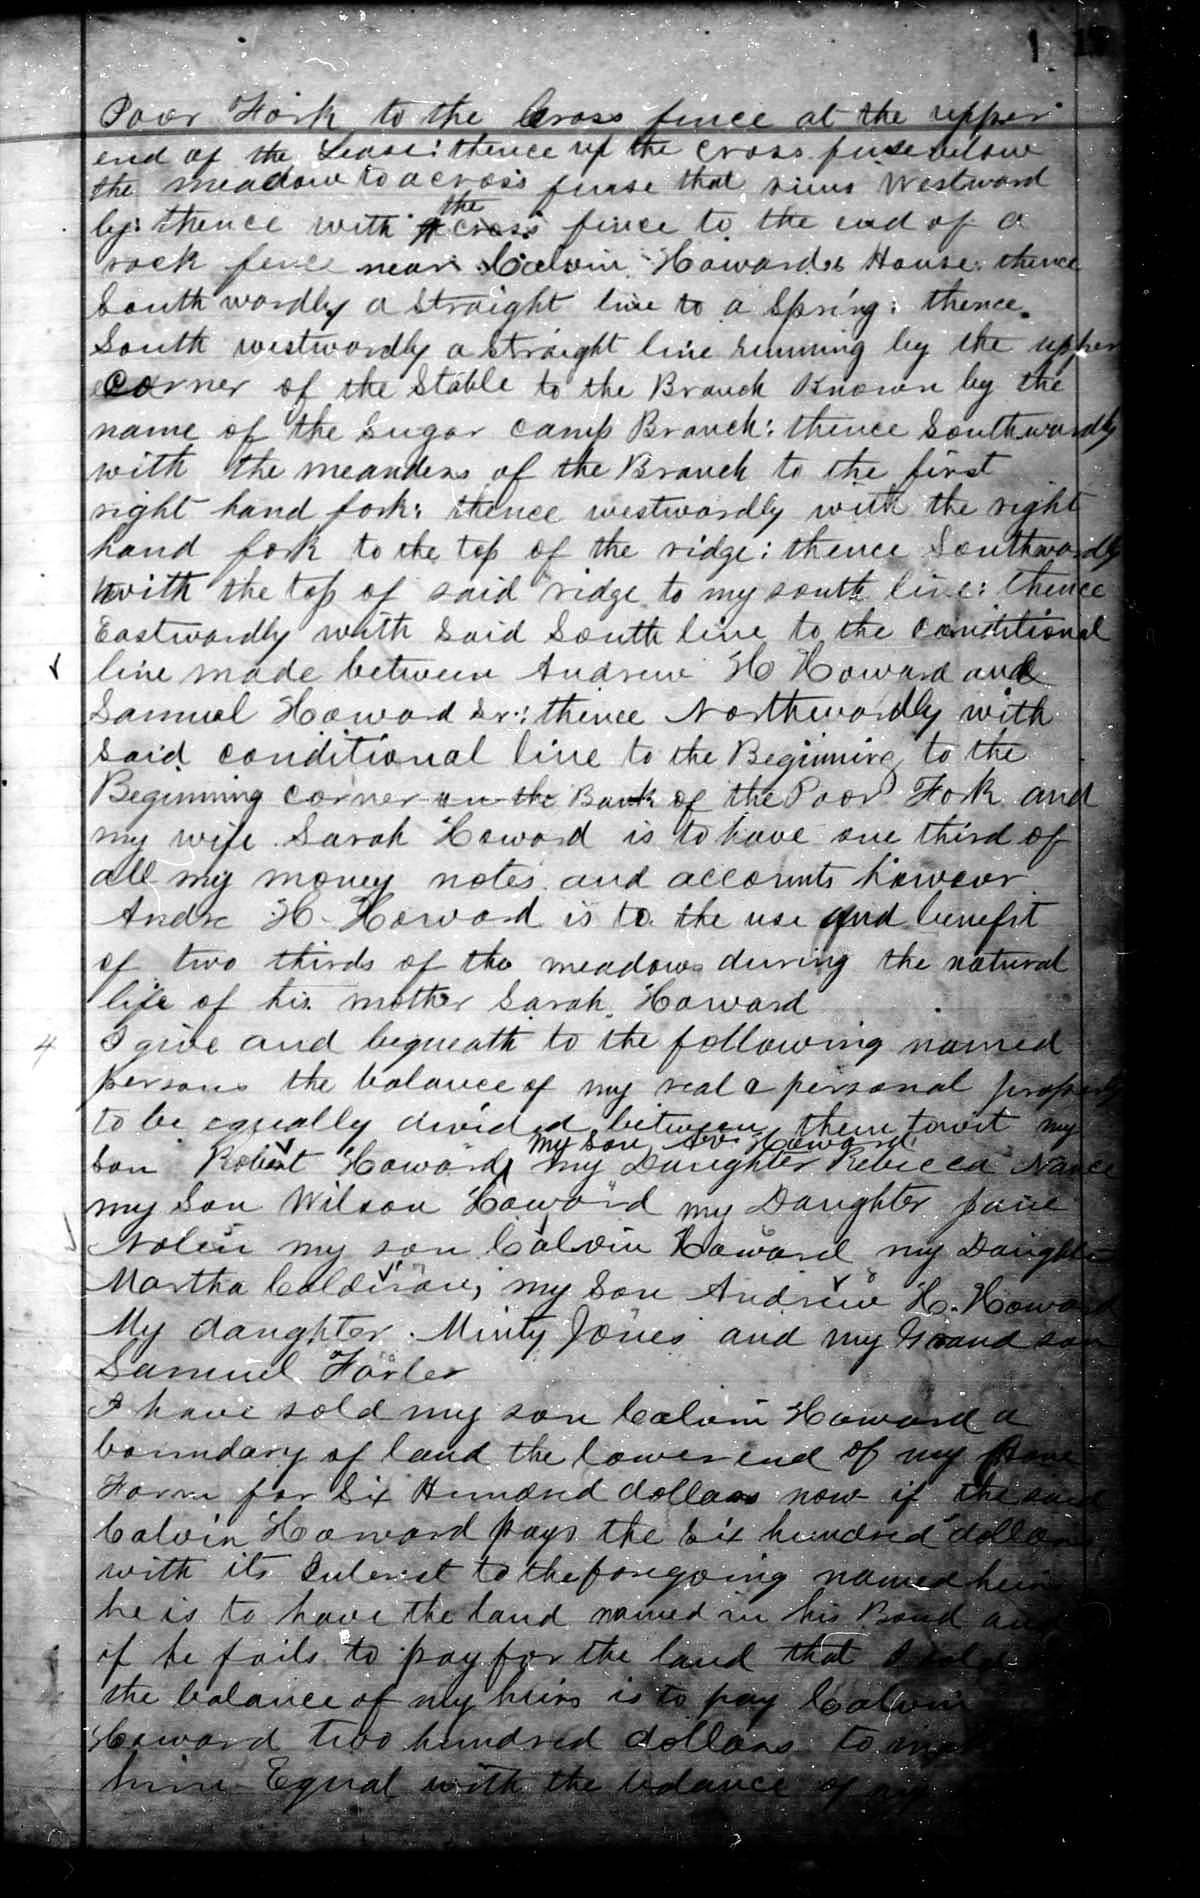 Poor Fork to the Cross fence at the upper
end of the Lease: thence up the cross fense below
the meadow to a cross fense that runs Westward
ly: thence with the cross fence to the end of a
rock fence near Calvin Howards House: thence
Southwardly a Straight line to a Spring: thence
South westwardly a straight line running by the upper
Corner of the Stable to the Branch Known by the
name of the Sugar Camp Branch: thence Southwardly
with the meanders of the Branch to the first
right hand fork: thence westwardly with the right
hand fork to the top of the ridge: thence Southwardly
with the top of said ridge to my south line: thence
Eastwardly with said South line to the conditional
line made between Andrew H Howard and
Samuel Howard Sr: thence Northwardly with
said conditional line to the Beginning to the
Beginning corner on the Bank of the Poor Fork and
my wife Sarah Howard is to have one third of
all my money notes and accounts however
Andre H. Howard is to the use and benefit
of two thirds of the meadows during the natural
life of his mother Sarah Howard
4 I give and bequeath to the following named
persons the balance of my real & personal property
to be equally divided between them towit my
my son Howard
son Robert Howard my Daughter Rebecca Nance
my Son Wilson Howard my Daughter Jane
Nolen my son Calvin Howard my Daughter
Martha my Son Andrew H. Howard
My daughter Minty Jones and my Grand son
Samuel Farler
I have sold my son Calvin Howard a
boundary of land the lower end of my Home
Farm for Six Hundred dollars now if the said
Calvin Howard pays the Six hundred dollars
with its Interest to the foregoing named heirs
he is to have the land named in his Bond and
if he fails to pay for the land that I sold
the balance of my heirs is to pay Calvin
Howard two hundred dollars to make
him Equal with the balance of my